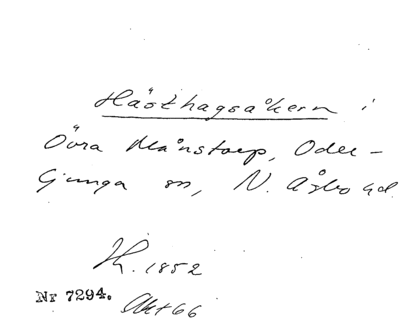 Hästhagsåkern i
Övra Månstorp, Oder-
ljunga sn, N. Åsbo hd.
Th. 1852
Nr 7294. Akt 66